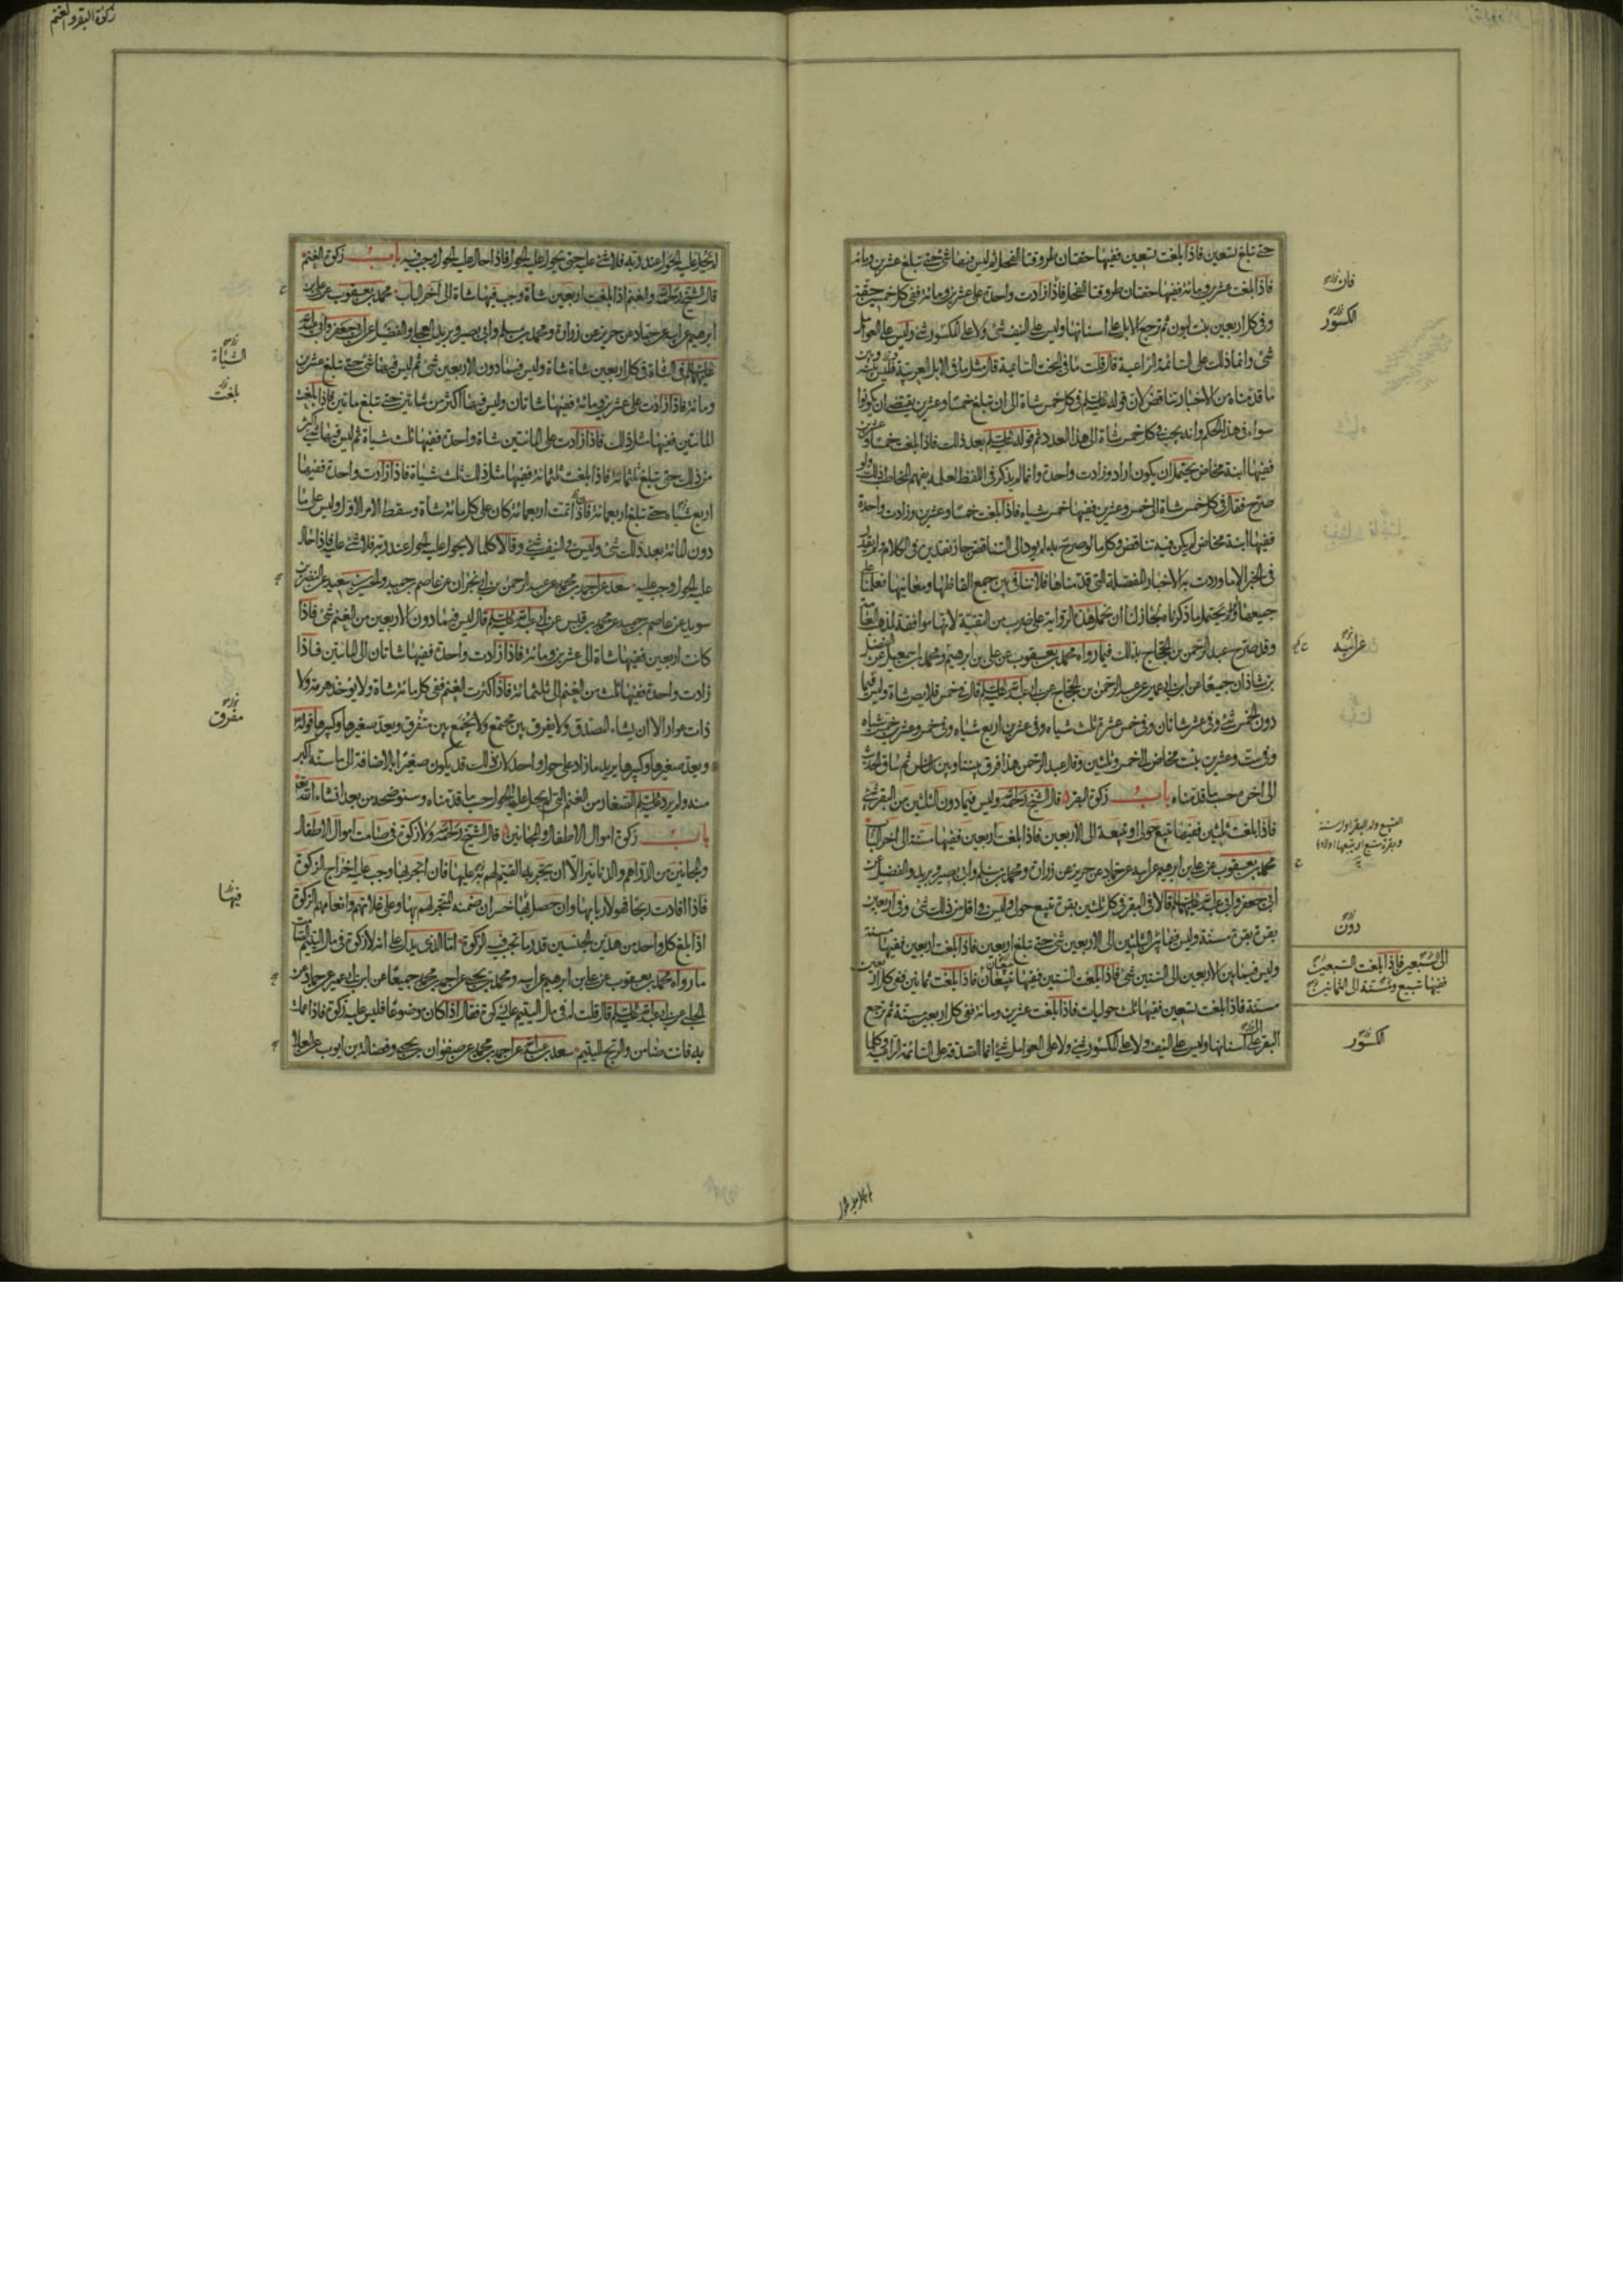 حتى تبلغ تسعين فاذا بلغت تسعين ففيها حقتان طروقتا الفحل ثم ليس فيها شئ حتى تبلغ عشرين ومائة
فاذا بلغت عشرين ومائة ففيها حقتان طروقتا الفحل فاذا زادت واحدة على عشرين ومائة ففى كل خمسين حقة
وفى كل اربعين بنت لبون ثم ترجع الابل على اسنانها وليس على النيف شئ ولا على الكسور شئ وليس على العوامل
شئ وانما ذلك على السائمة الراعية قال قلت ما فى البخت السائمة قال مثل ما فى الابل العربية فليس بينه وبين
ما قدمناه من الاخبار تناقض لان قوله عليه السلم فى كل خمس شاة الى ان تبلغ خمسا وعشرين يقتضى ان يكونوا
سواء فى هذا الحكم وانه يجب فى كل خمس شاة الى هذا العدد ثم قوله عليه السلم بعد ذلك فاذا بلغت خمسا وعشرين
ففيها ابنة مخاض يحتمل ان يكون اراد وزادت واحدة وانما لم يذكر فى اللفظ لعلمه بفهم المخاطب ذلك ولو
صرح فقال فى كل خمس شاة الى خمس وعشرين ففيها خمس شياه فاذا بلغت خمسا وعشرين وزادت واحدة
ففيها ابنة مخاض لم يكن فيه تناقض وكل ما لو صرح به لم يؤد الى التناقض جاز تقديره فى الكلام
فى الخبر الا ما وردت به الاخبار المفصلة التى قدمناها فلا تنافى بين جميع الفاظها ومعانيها
جميعها ولو لم يحتمل ما ذكرناه لجاز لنا ان نحمل هذه الرواية على ضرب من التقية لانها موافقة لمذهب العامة
وقد صرح عبد الرحمن بن الحجاج بذلك فيما رواه محمد بن يعقوب عن على بن ابرهيم ومحمد بن اسمعيل عن الفضل
بن شاذان جميعا عن ابن ابى عمير عن عبد الرحمن بن الحجاج عن ابى عبد الله عليه السلم قال فى خمس قلايص شاة وليس فيما
دون الخمس شئ وفى عشر شاتان وفى خمس عشرة ثلث شياه وفى عشرين اربع شياه وفى خمس وعشرين خمس شياه
وفى ست وعشرين بنت مخاض الى خمس وثلثين وقال عبد الرحمن هذا فرق بيننا وبين الناس ثم ساق الحديث
الى اخره حسب ما قدمناه باب زكوة البقر قال الشيخ رحمه الله وليس فيما دون الثلثين من البقر شئ
فاذا بلغت ثلثين ففيها تبيع حولى او تبيعة الى الاربعين فاذا بلغت اربعين ففيها مسنة الى اخر الباب
محمد بن يعقوب عن على بن ابرهيم عن ابيه عن حماد عن حريز عن زرارة ومحمد بن مسلم وابى بصير وبريد والفضيل عن
ابى جعفر وابى عبد الله عليهما السلم قالا فى البقر فى كل ثلثين بقرة تبيع حولى وليس فى اقل من ذلك شئ وفى اربعين
بقرة بقرة مسنة وليس فيما بين الثلثين الى الاربعين شئ حتى تبلغ اربعين فاذا بلغت اربعين ففيها مسنة
وليس فيما بين الاربعين الى الستين شئ فاذا بلغت الستين ففيها تبيعان فاذا بلغت ثمانين ففى كل اربعين
مسنة فاذا بلغت تسعين ففيها ثلث حوليات فاذا بلغت عشرين ومائة ففى كل اربعين مسنة ثم ترجع
البقر على اسنانها وليس على النيف ولا على الكسور شئ ولا على العوامل شئ انما الصدقة على السائمة الراعية وكلما
فان
الكسور
عن ابيه
التبيع ولد البقر اول سنة
وبقرة متبع اى يتبعها ولدها
دون
الى السبعين فاذا بلغت السبعين
ففيها تبيع ومسنة الى الثمانين
الكسور
زكوة البقر والغنم
لم يحل عليه الحول عند ربه فلا شئ عليه حتى يحول عليه الحول فاذا حال عليه الحول وجب فيه باب زكوة الغنم
قال الشيخ رحمه الله والغنم اذا بلغت اربعين شاة وجب فيها شاة الى اخر الباب محمد بن يعقوب عن على بن
ابرهيم عن ابيه عن حماد عن حريز عن زرارة ومحمد بن مسلم وابى بصير وبريد العجلى والفضيل عن ابى جعفر وابى عبد الله
عليهما السلم فى الشاة فى كل اربعين شاة شاة وليس فيما دون الاربعين شئ ثم ليس فيها شئ حتى تبلغ عشرين
ومائة فاذا زادت على عشرين ومائة ففيها شاتان وليس فيها اكثر من شاتين حتى تبلغ مائتين فاذا بلغت
المائتين ففيها مثل ذلك فاذا زادت على المائتين شاة واحدة ففيها ثلث شياة ثم ليس فيها شئ اكثر
من ذلك حتى تبلغ ثلثمائة فاذا بلغت ثلثمائة ففيها مثل ذلك ثلث شياة فاذا زادت واحدة ففيها
اربع شياه حتى تبلغ اربعمائة فاذا تمت اربعمائة كان على كل مائة شاة وسقط الامر الاول وليس على ما
دون المائة بعد ذلك شئ وليس فى النيف شئ وقالا كلما لا يحول عليه الحول عند ربه فلا شئ عليه فاذا حال
عليه الحول وجب عليه سعد عن احمد بن محمد عن عبد الرحمن بن ابى نجران عن عاصم بن حميد والحسين بن سعيد عن النضر بن
سويد عن عاصم بن حميد عن محمد بن قيس عن ابى عبد الله عليه السلم قال ليس فيما دون الاربعين من الغنم شئ فاذا
كانت اربعين ففيها شاة الى عشرين ومائة فاذا زادت واحدة ففيها شاتان الى المائتين فاذا
زادت واحدة ففيها ثلث من الغنم الى ثلثمائة فاذا كثرت الغنم ففى كل مائة شاة ولا يؤخذ هرمة ولا
ذات عوار الا ان يشاء المصدق ولا يفرق بين مجتمع ولا يجمع بين متفرق ويعد صغيرها وكبيرها قوله
ويعد صغيرها وكبيرها يريد ما زاد على حول واحد لان ذلك قد يكون صغيرا بالاضافة الى ما سنه اكبر
منه ولم يرد عليه السلم الصغار من الغنم التى لم يحل عليها الحول حسب ما قدمناه وسنوضحه من بعد انشاء الله تعالى
باب زكوة اموال الاطفال والمجانين قال الشيخ رحمه الله ولا زكوة فى صامت اموال الاطفال
والمجانين من الدراهم والدنانير الا ان يتجر به القيم لهم عليها فان اتجر بها وجب عليه اخراج الزكوة
فاذا افادت ربحا فهو لاربابها وان حصل فيها خسران ضمنه المتجر لهم بها وعلى غلاتهم وانعامهم الزكوة
اذا بلغ كل واحد من هذين الجنسين قدر ما تجب فيه الزكوة اما الذى يدل على انه لا زكوة فى مال اليتيم
ما رواه محمد بن يعقوب عن على بن ابرهيم عن ابيه ومحمد بن يحيى عن احمد بن محمد جميعا عن ابن ابى عمير عن حماد عن
الحلبى عن ابى عبد الله عليه السلم قال قلت له فى مال اليتيم عليه زكوة فقال اذا كان موضوعا فليس عليه زكوة فاذا عملت
به فانت ضامن والربح لليتيم سعد بن عبد الله عن احمد بن محمد عن صفوان بن يحيى وفضالة بن ايوب عن العلا
الشياة
بلغت
مفرق
فيها